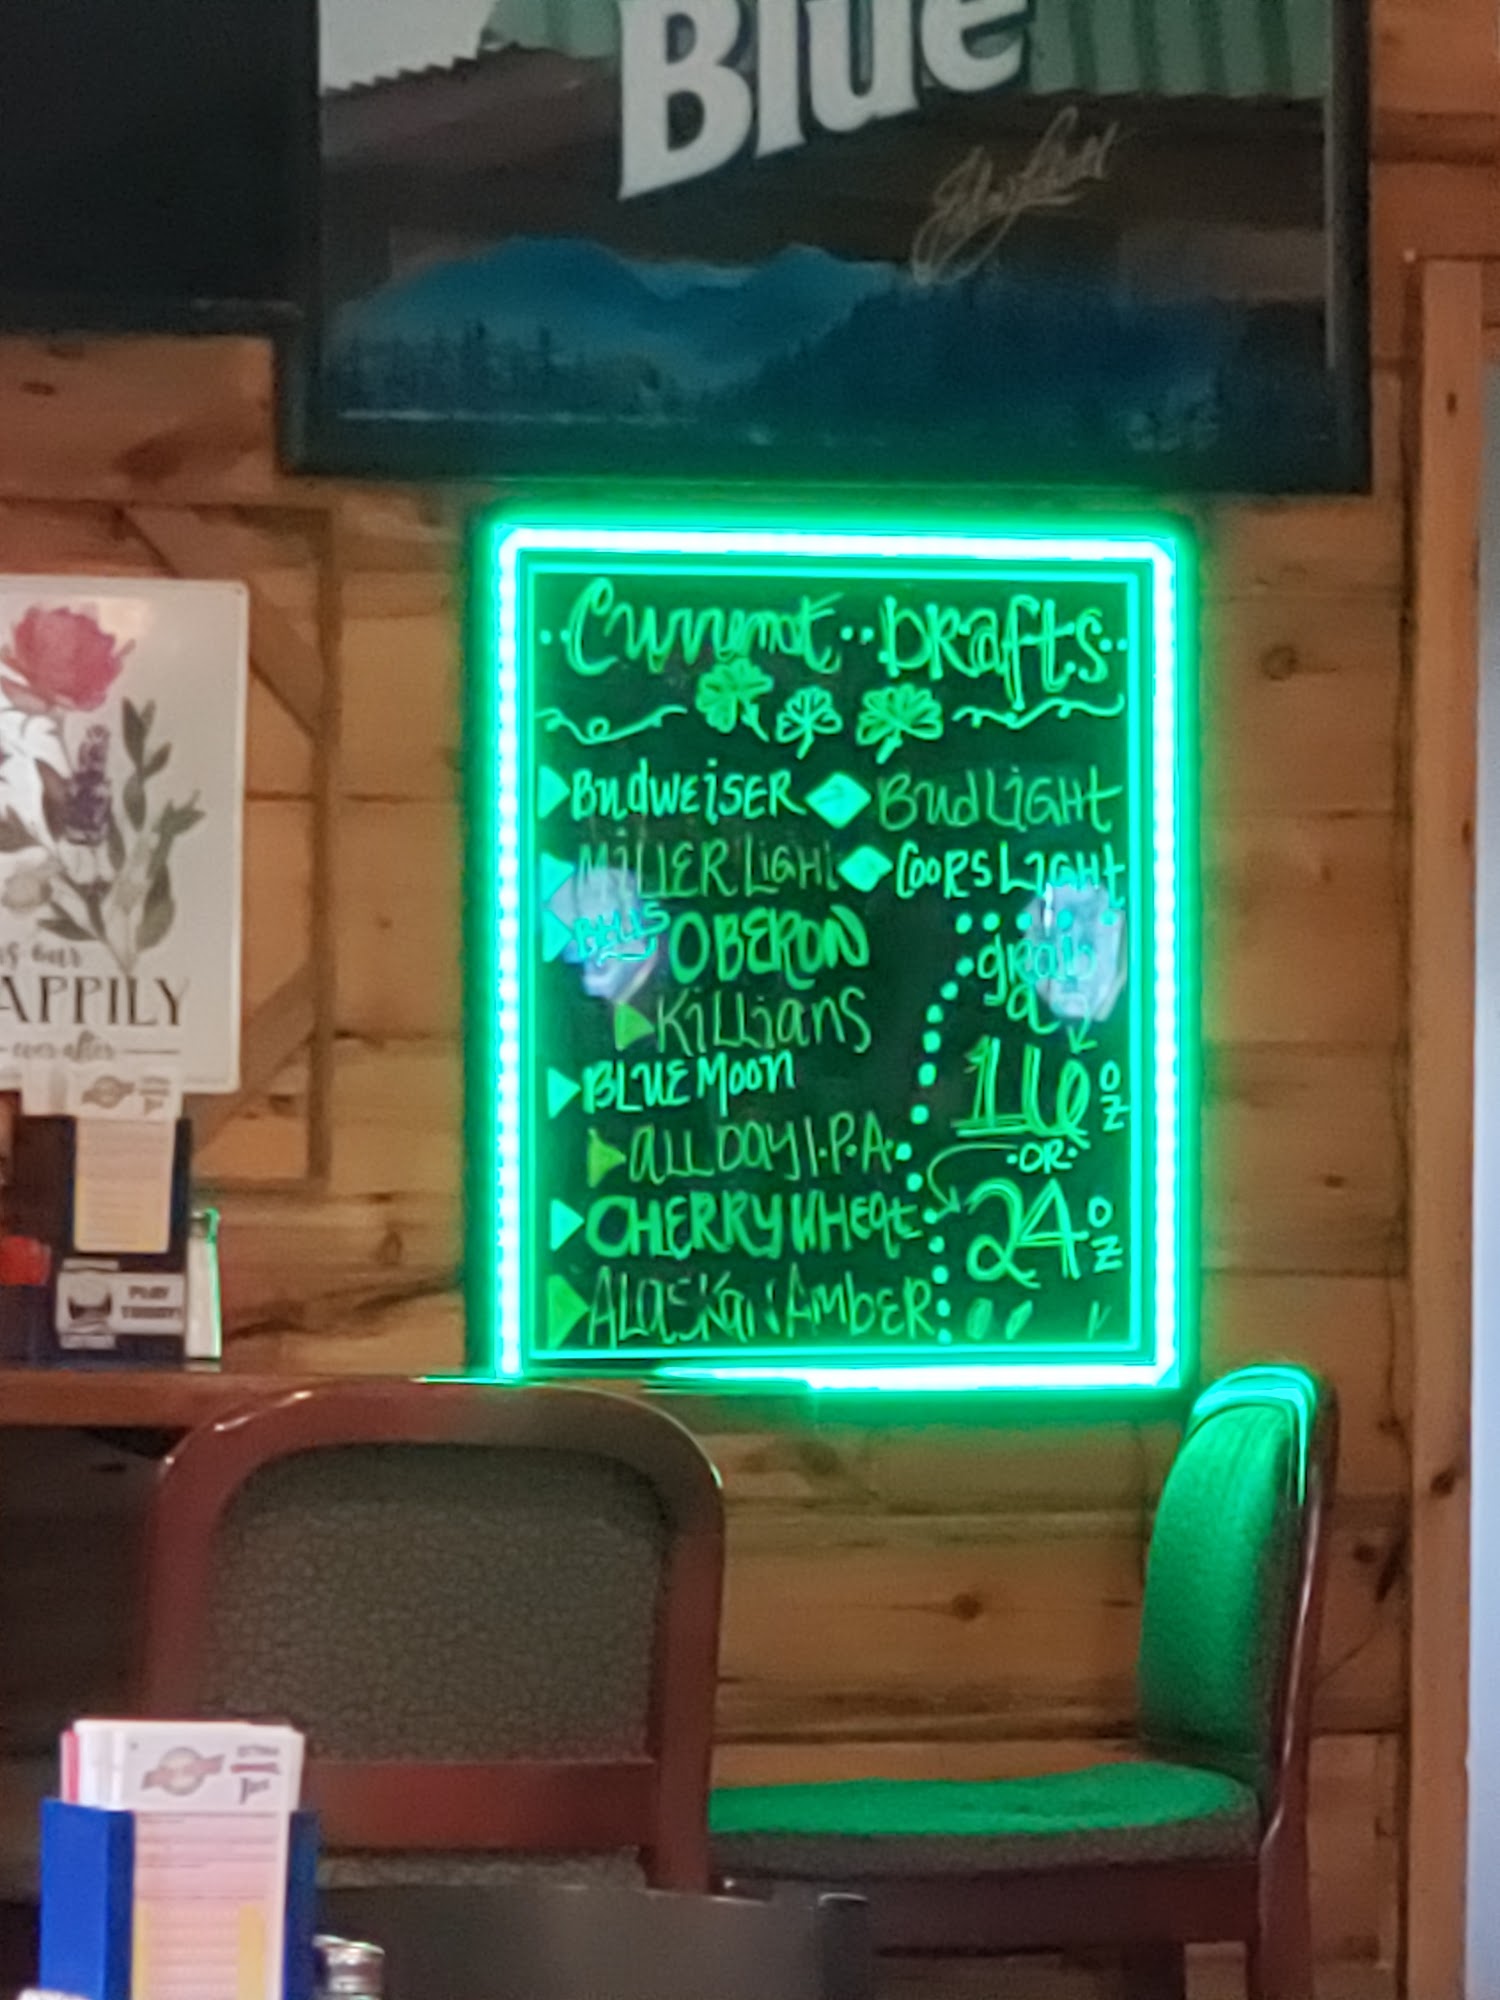 Blue
Current Drafts
Budweiser Bud Light
Miller Light Coors Light
Bells Oberon
Killians
Blue Moon
All Day I.P.A.
Cherry Wheat
Alaskan Amber
grab
a
16 oz
OR
24 oz
APPILY
ever after
PLAY
TODAY!